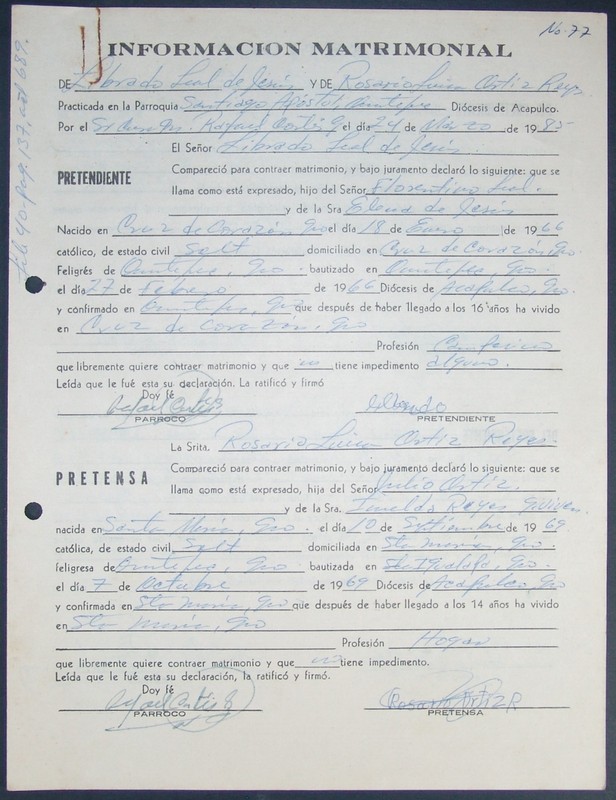 No. 77
Lib 40-pag. 137, act 689.
INFORMACION MATRIMONIAL
DE Librado Leal de Jesús Y DE Rosario Luisa Ortiz Reyes
Practicada en la Parroquia Santiago Apóstol, Diócesis de Acapulco.
Por el Sr Cura Rafael Cortés el día 24 de Marzo de 1985
El Señor Librado Leal de Jesús.
PRETENDIENTE
Compareció para contraer matrimonio, y bajo juramento declaró lo siguiente: que se
llama como está expresado, hijo del Señor Florentino Leal.
y de la Sra Elena de Jesús
Nacido en Cruz de Corazón, Gro el día 18 de Enero de 1966
católico, de estado civil Solt domiciliado en Cruz de Corazón, Gro.
Feligrés de Gro. bautizado en Gro.
el día 27 de Febrero de 1966 Diócesis de Acapulco, Gro.
y confirmado en Gro que después de haber llegado a los 16 años ha vivido
en Cruz de Corazón, Gro
Profesión Campesino
que libremente quiere contraer matrimonio y que no tiene impedimento alguno.
Leída que le fué esta su declaración. La ratificó y firmó
Doy fé
Rafael Cortés
PARROCO
Librado
PRETENDIENTE
La Srita. Rosario Luisa Ortiz Reyes.
PRETENSA
Compareció para contraer matrimonio, y bajo juramento declaró lo siguiente: que se
llama como está expresado, hija del Señor Julio Ortiz.
y de la Sra. Imelda Reyes
nacida en Santa María, Gro. el día 10 de Septiembre de 1969
católica, de estado civil Solt domiciliada en Sta María, Gro.
feligresa de Gro. bautizada en Gro.
el día 7 de Octubre de 1969 Diócesis de Acapulco, Gro
y confirmada en Sta María, Gro que después de haber llegado a los 14 años ha vivido
en Sta María, Gro
Profesión Hogar
que libremente quiere contraer matrimonio y que no tiene impedimento.
Leída que le fué esta su declaración, la ratificó y firmó.
Doy fé
Rafael Cortés
PARROCO
Rosario Ortiz R
PRETENSA